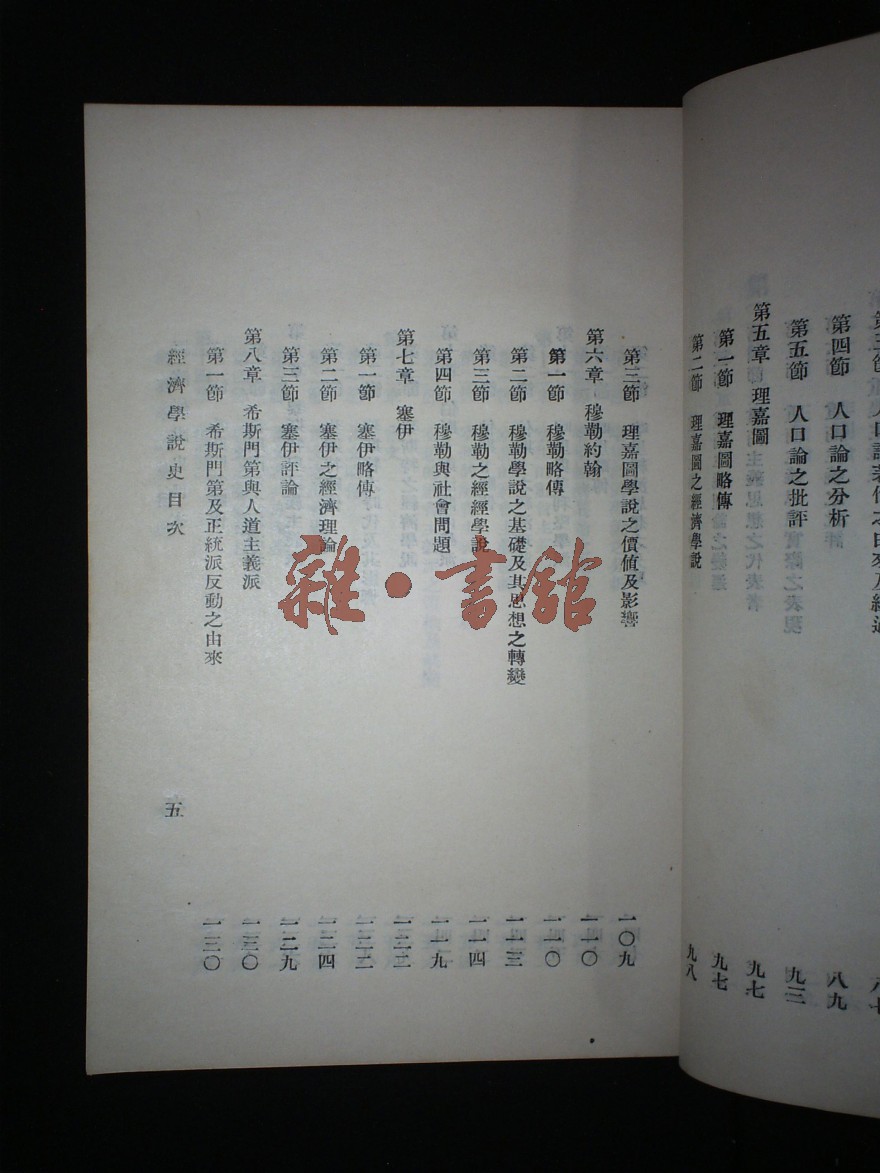 第四節 人口論之分析 八九
第五節 人口論之批評 九三
第五章 理嘉圖 九七
第一節 理嘉圖略傳 九七
第二節 理嘉圖之經濟學說 九八
第三節 理嘉圖學說之價值及影響 一〇九
第六章 穆勒約翰 一一〇
第一節 穆勒略傳 一一〇
第二節 穆勒學說之基礎及其思想之轉變 一一三
第三節 穆勒之經經學說 一一四
第四節 穆勒與社會問題 一一九
第七章 塞伊 一二二
第一節 塞伊略傳 一二二
第二節 塞伊之經濟理論 一二四
第三節 塞伊評論 一二九
第八章 希斯門第與人道主義派 一三〇
第一節 希斯門第及正統派反動之由來 一三〇
經濟學說史目次 五
雜·書館